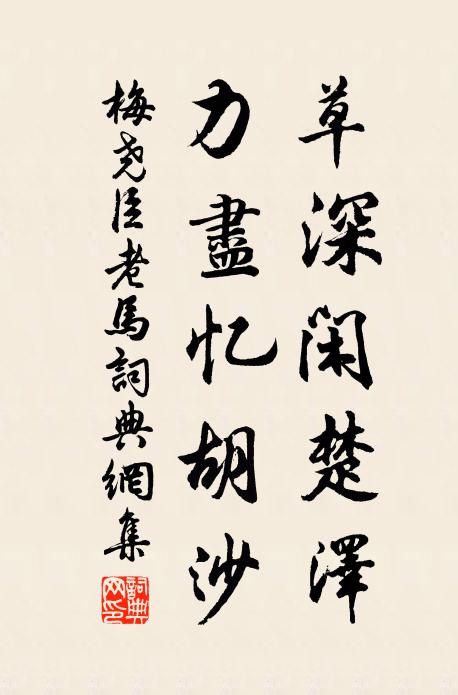 草深闲楚澤
力盡忆胡沙
梅尧臣老馬詞典網集
詞典网印